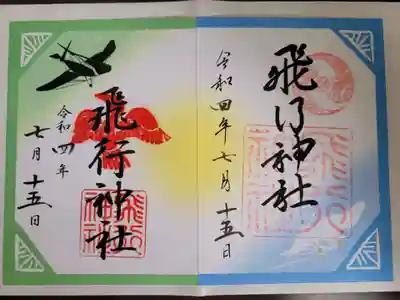 飛行神社
令和四年七月十五日
飛行神社
令和四年
七月十五日
飛行神社